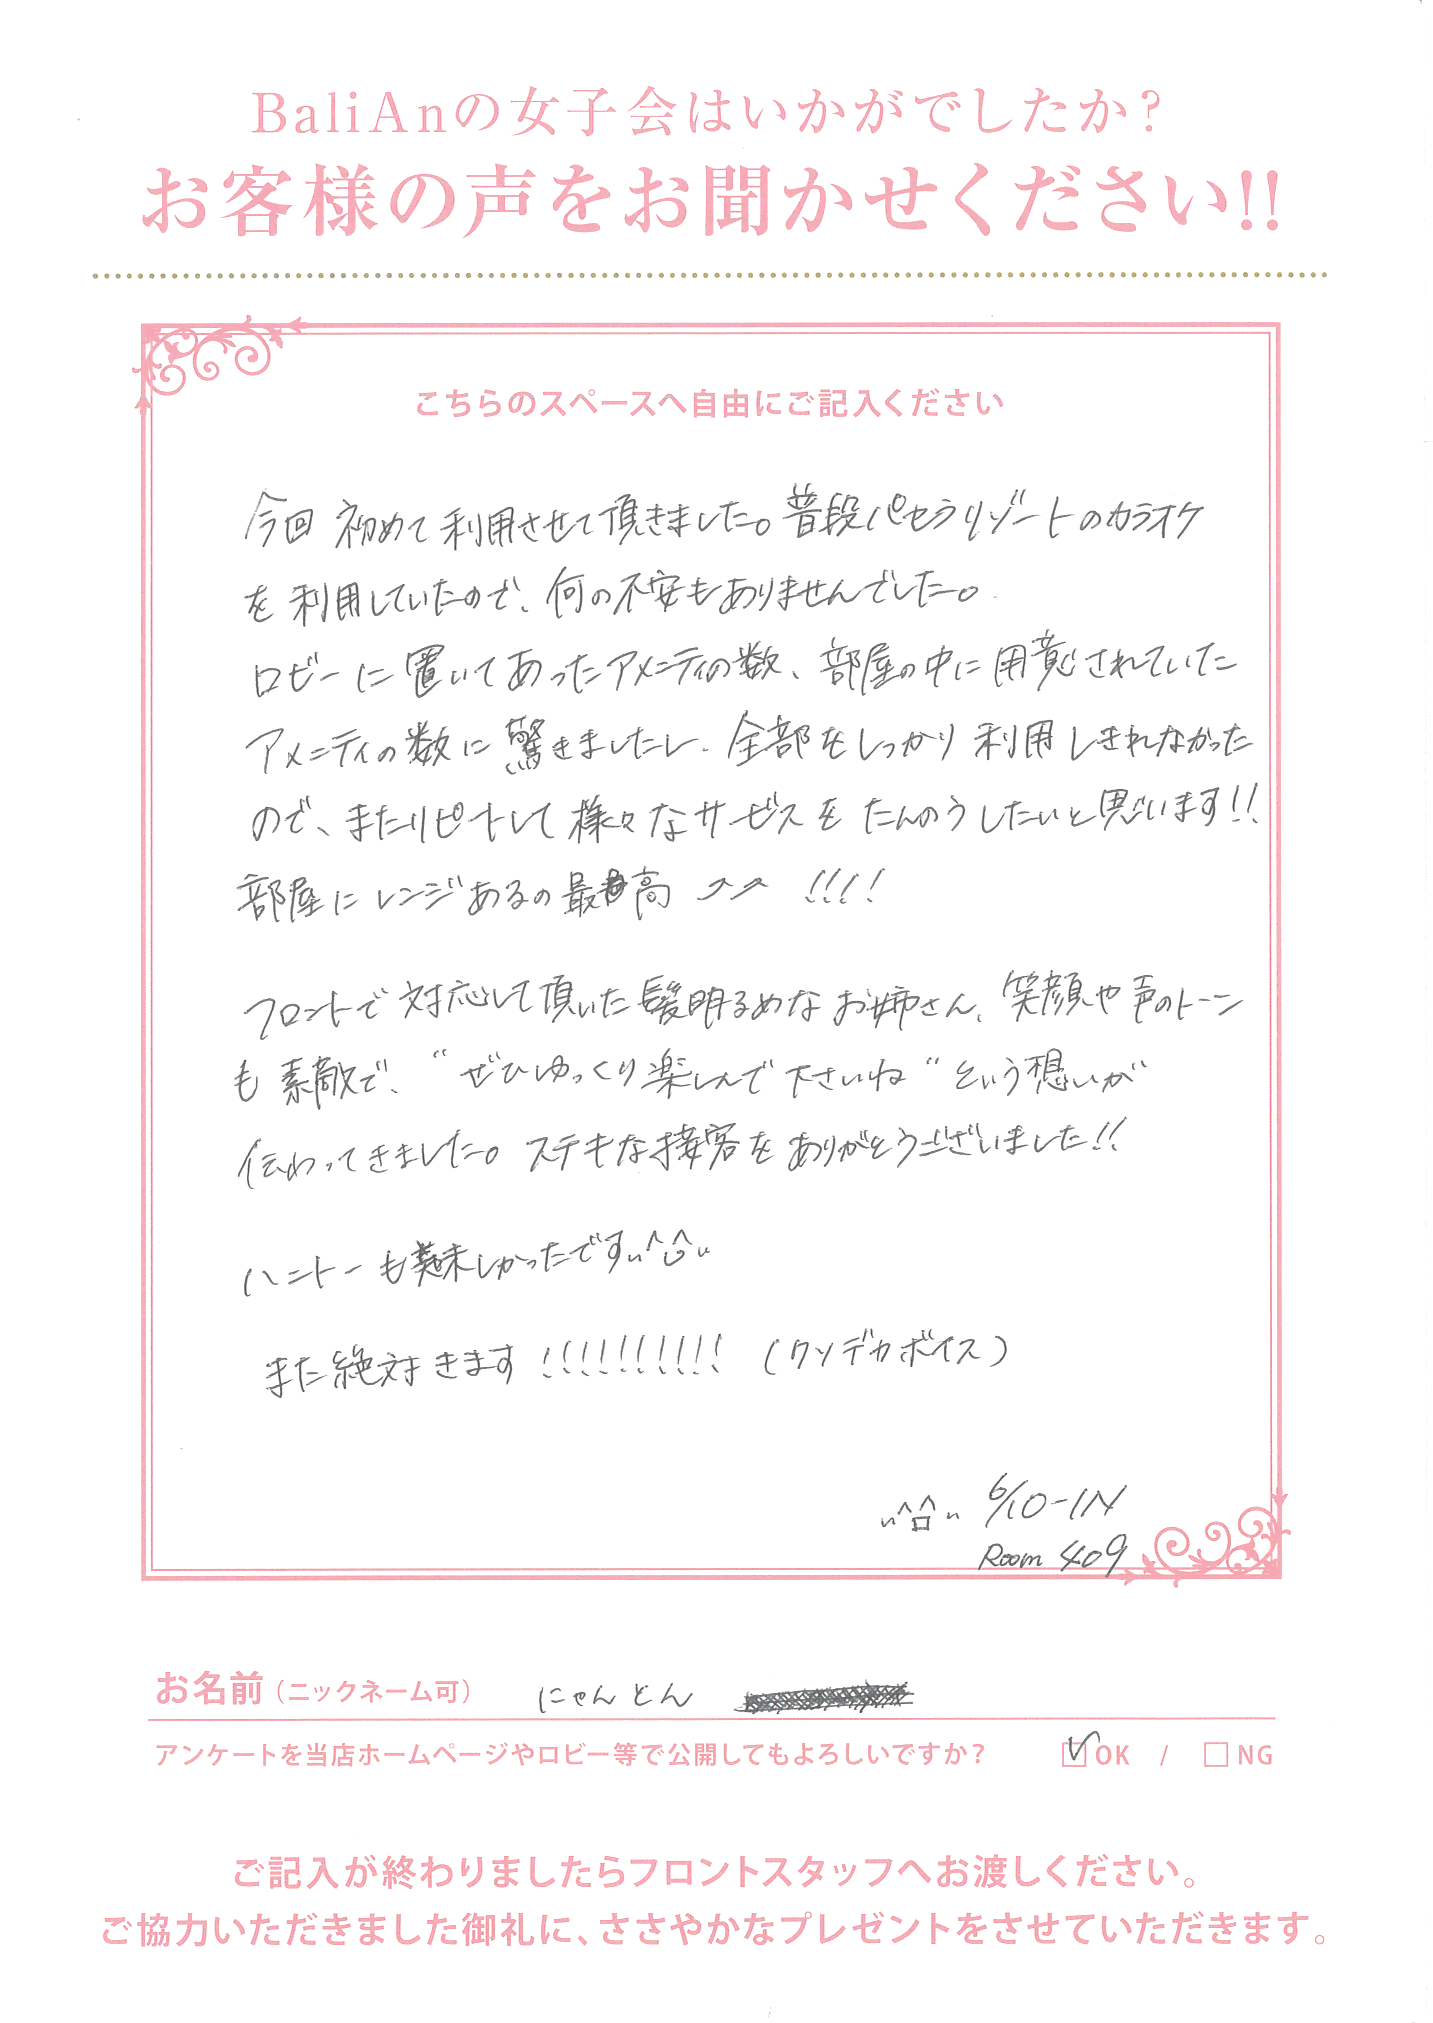 BaliAnの女子会はいかがでしたか?
お客様の声をお聞かせください!!
こちらのスペースへ自由にご記入ください
今回初めて利用させて頂きました。普段パセラリゾートのカラオケ
を利用していたので、何の不安もありませんでした。
ロビーに置いてあったアメニティの数、部屋の中に用意されていた
アメニティの数に驚きましたし、全部をしっかり利用しきれなかった
ので、またリピートして様々なサービスをたんのうしたいと思います!!
部屋にレンジあるの最高 ↗↗ !!!!
フロントで対応して頂いた髪明るめなお姉さん、笑顔や声のトーン
も素敵で、“ぜひゆっくり楽しんで下さいね”という想いが
伝わってきました。ステキな接客をありがとうございました!!
ハニトーも美味しかったです
また絶対きます!!!!!!!!!! (クソデカボイス)
6/10-IN
Room 409
お名前(ニックネーム可) にゃんとん
アンケートを当店ホームページやロビー等で公開してもよろしいですか? ☑OK / □NG
ご記入が終わりましたらフロントスタッフへお渡しください。
ご協力いただきました御礼に、ささやかなプレゼントをさせていただきます。